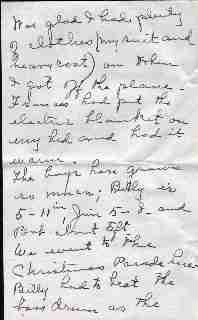 Was glad I had plenty
of clothes (my suit and
heavy coat) on when
I got off the plane.
Frances had put the
electric blanket on
my bed and had it
warm.
The boys have grown
so much; Billy is
5-11in, Jim 5-8 and
Bob about 5ft
We went to the
Christmas Parade here
Billy had to beat the
bass drum as the